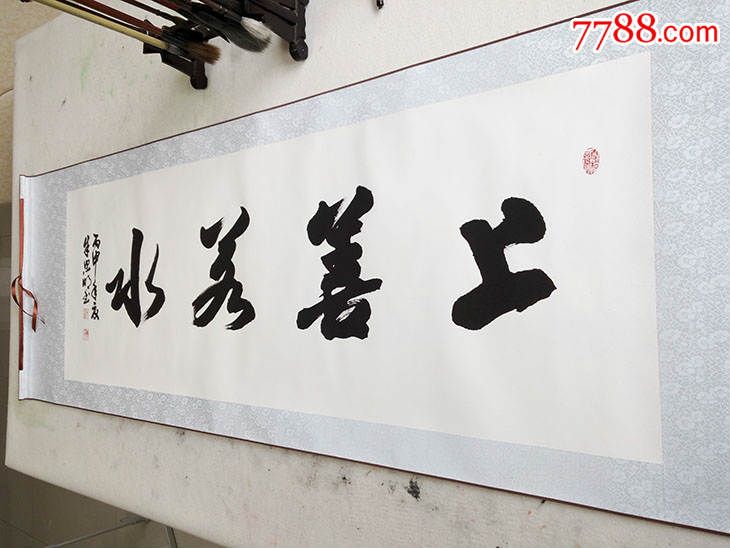 7788.com
上善若水
丙申年夏